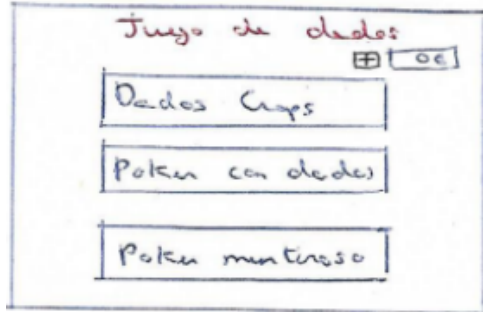 Juego de dados
+ 0€
Dados Craps
Poker con dados
Poker mentiroso